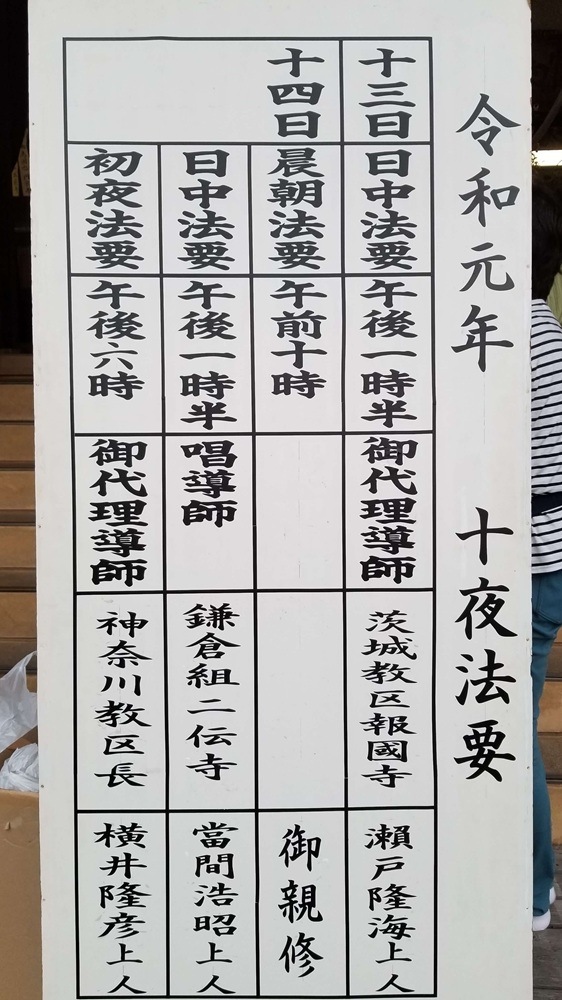 令和元年 十夜法要
十三日
日中法要
午後一時半
御代理導師
茨城教区報國寺
瀬戸隆海上人
十四日
晨朝法要
午前十時
御親修
日中法要
午後一時半
唱導師
鎌倉組二伝寺
當間浩昭上人
初夜法要
午後六時
御代理導師
神奈川教区長
横井隆彦上人